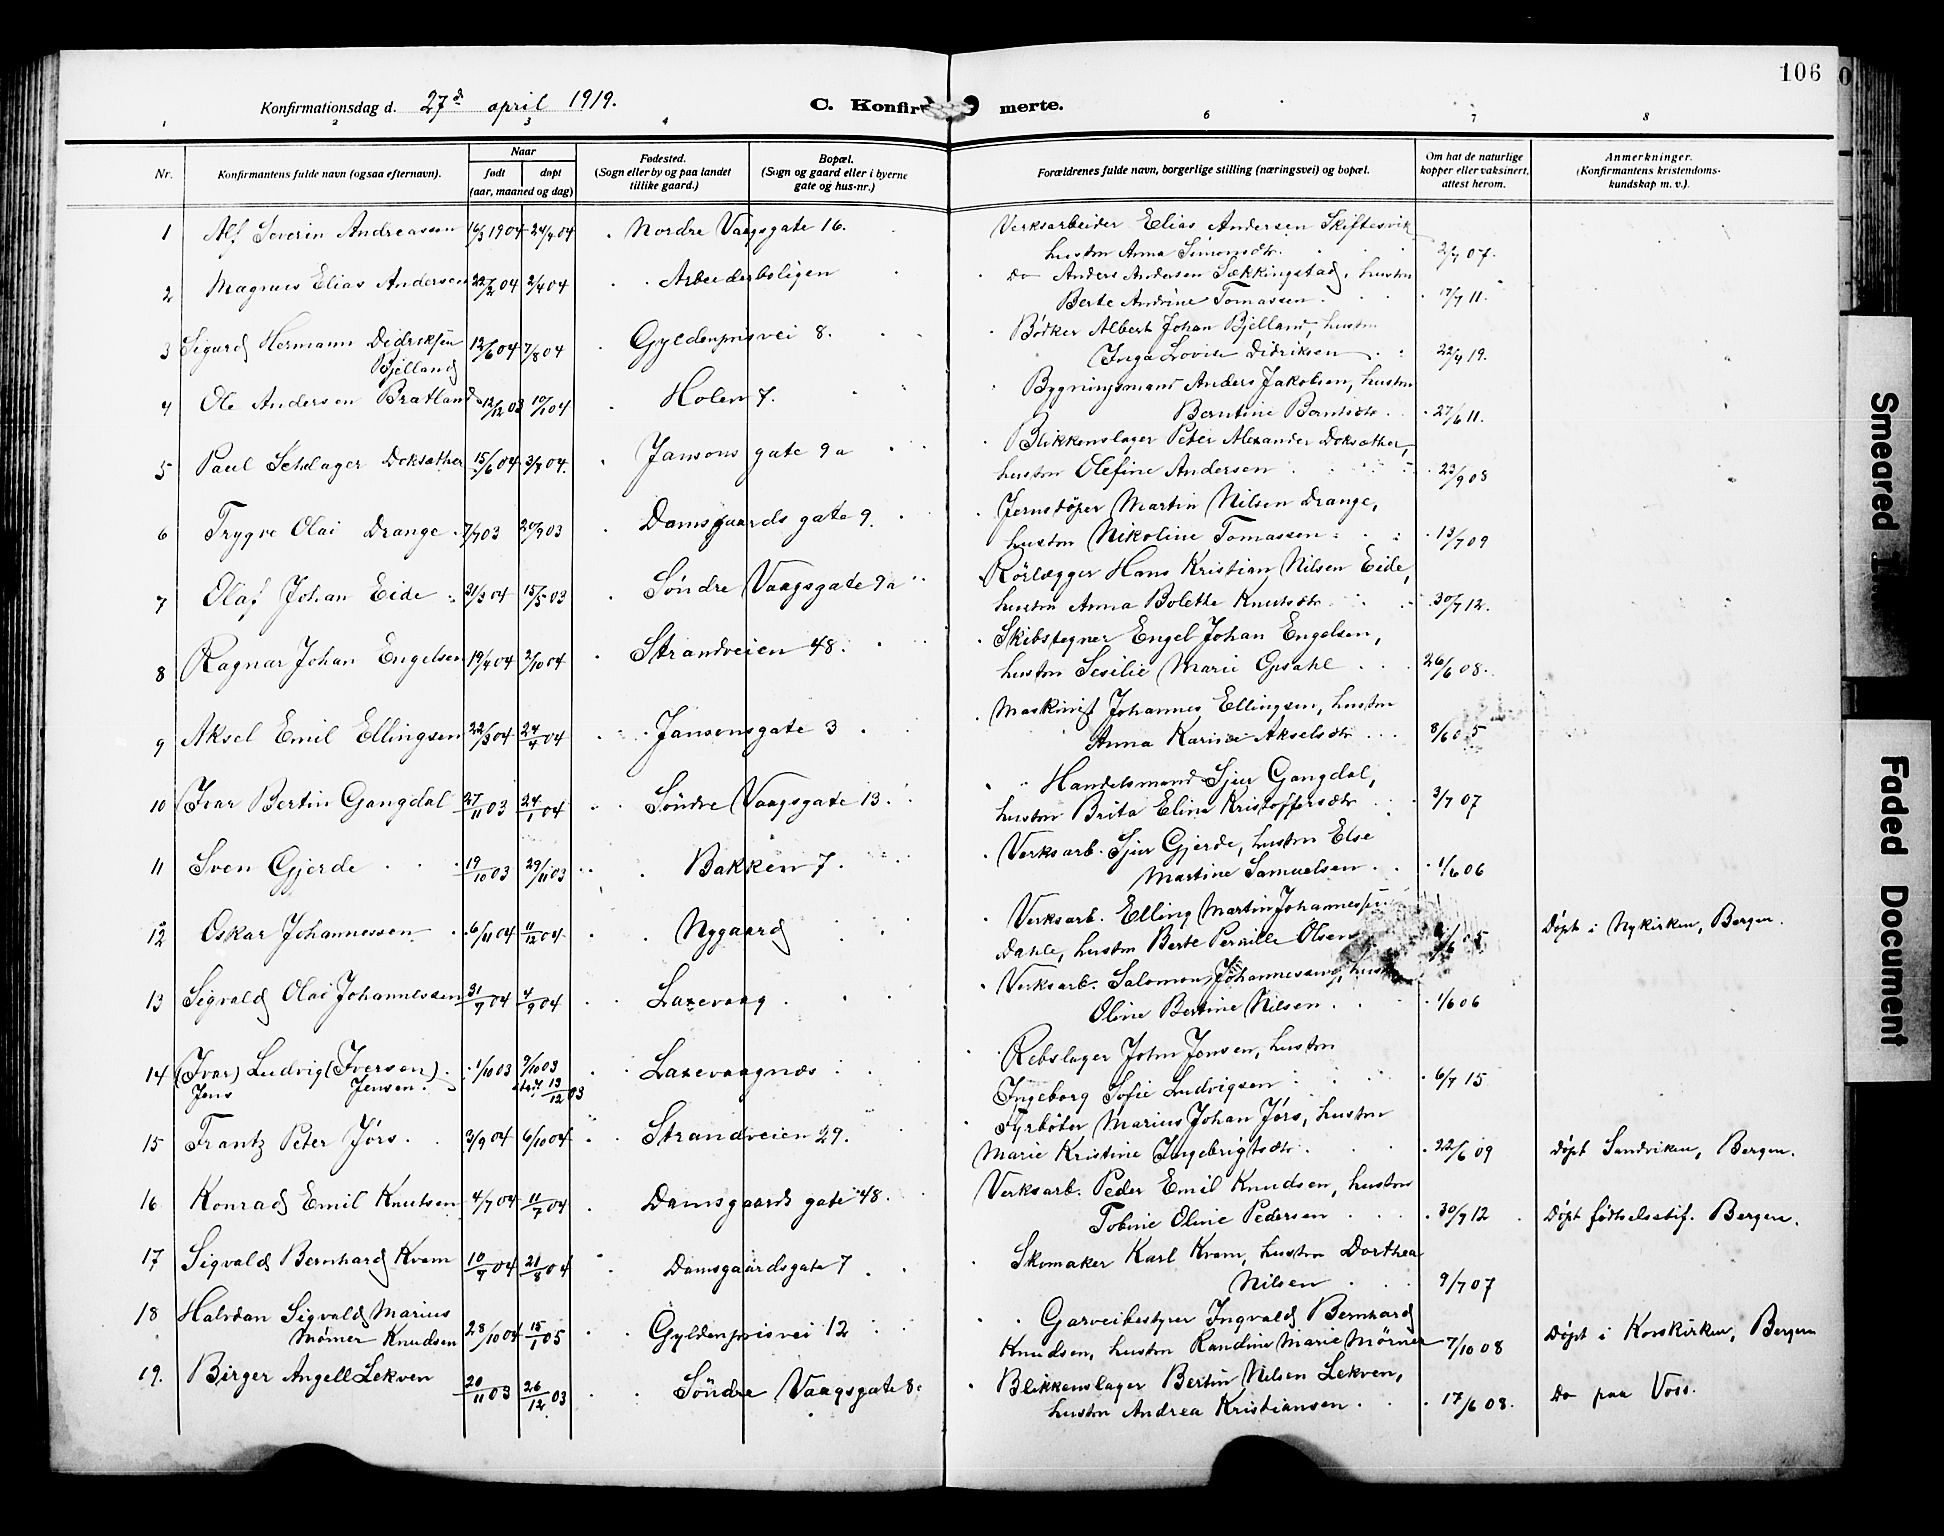 106
Konfirmationsdag d. 27d april 1919.
C. Konfirmerte.
1 2 3 4 6 7 8
Nr.
Konfirmantens fulde navn (ogsaa efternavn).
Naar
født døpt
(aar, maaned og dag)
Fødested.
(Sogn eller by og paa landet
tillike gaard.)
Bopæl.
(Sogn og gaard eller i byerne
gate og hus-nr.)
Forældrenes fulde navn, borgerlige stilling (næringsvei) og bopæl.
Om hat de naturlige
kopper eller vaksinert,
attest herom.
Anmerkninger.
(Konfirmantens kristendoms-
kundskap m. v.).
1 Alf Severin Andreassen 16/3 1904 24/4 04 Nordre Vaagsgate 16. Verksarbeider Elias Andersen Skiftesvik
hustru Anna Simonsdtr. 2/7 07.
2 Magnus Elias Andersen 22/2 04 2/4 04 Arbeiderboligen Do Anders Andersen Sækkingstad, hustru
Berte Andrine Tomassen 17/7 11.
3 Sigurd Hermann Didriksen 12/6 04 7/8 04 Gyldenprisvei 8. Bødker Albert Johan Bjelland, hustru
Bjelland Inga Lovise Didriksen 22/4 19.
4 Ole Andersen Bratland 12/12 03 10/1 04 Holen 7. Bygningsmand Anders Jakobsen, hustru
Berntine Berntsdtr. 27/6 11.
5 Paul Schlager Doksæther 15/6 04 3/7 04. Jansons gate 9a Blikkenslager Peter Alexander Doksæther,
hustru Olefine Andersen 23/9 08
6 Trygve Olai Drange 7/7 03 20/9 03 Damsgaards gate 9. Jernstøper Martin Nilsen Drange,
hustru Nikoline Tomassen 13/7 09
7 Olaf Johan Eide 31/3 04 15/5 03 Søndre Vaagsgate 9a Rørlægger Hans Kristian Nilsen Eide,
hustru Anna Bolette Knutsdtr 30/7 12.
8 Ragnar Johan Engelsen 19/4 04 2/10 04 Strandveien 48. Skibstegner Engel Johan Engelsen,
hustru Sesilie Marie Opsahl 26/6 08.
9 Aksel Emil Ellingsen 22/3 04 24/4 04 Jansonsgate 3 Maskinist Johannes Ellingsen, hustru
Anna Karine Akselsdtr 8/6 05
10 Ivar Bertin Gangdal 27/11 03 24/1 04 Søndre Vaagsgate 13. Handelsmand Sjur Gangdal,
hustru Brita Elina Kristoffersdtr 3/7 07
11 Sven Gjerde 19/10 03 29/11 03 Bakken 7. Verksarb. Sjur Gjerde, hustru Else
Martine Samuelsen 1/6 06
12 Oskar Johannessen 6/11 04 11/12 04 Nygaard Verksarb. Elling Martin Johannessen
Dahle, hustru Berte Pernille Olsen /6 05 Døpt i Nykirken, Bergen.
13 Sigvald Olai Johannessen 31/7 04 4/9 04 Laxevaag Verksarb. Salomon Johannessen, hustru
Oline Bertine Nilsen 1/6 06
14 (Ivar) Ludvig (Iversen) 1/10 03 9/10 03 Laxevaagnæs Rebslager John Jensen, hustru
Jens Jensen. stadf. 13/12 03 Ingeborg Sofie Ludvigsen 6/7 15
15 Frantz Peter Jørs 3/9 04 6/10 04 Strandveien 29. Fyrbøter Marius Johan Jørs, hustru
Marie Kristine Ingebrigtsdtr. 22/6 09 Døpt Sandviken, Bergen.
16 Konrad Emil Knutsen 4/7 04 11/7 04 Damsgaards gate 48. Verksarb. Peder Emil Knudsen, hustru
Tobine Oline Pedersen 30/7 12 Døpt fødselsstif. Bergen.
17 Sigvald Bernhard Kvam 10/7 04 21/8 04 Damsgaardsgate 7 Skomaker Karl Kvam, hustru Dorthea
Nilsen 9/7 07
18 Halvdan Sigvald Marius Garveribestyrer Ingvald Bernhard
Mørner Knudsen 28/10 04 15/1 05 Gyldenprisvei 12 Knudsen, hustru Randine Marie Mørner 7/10 08 Døpt i Korskirken, Bergen
19. Birger Angell Lekven 20/11 03 26/12 03 Søndre Vaagsgate 8. Blikkenslager Bertin Nilsen Lekven,
hustru Andrea Kristiansen 17/6 08. Do paa Voss.
Smeared
Faded Document